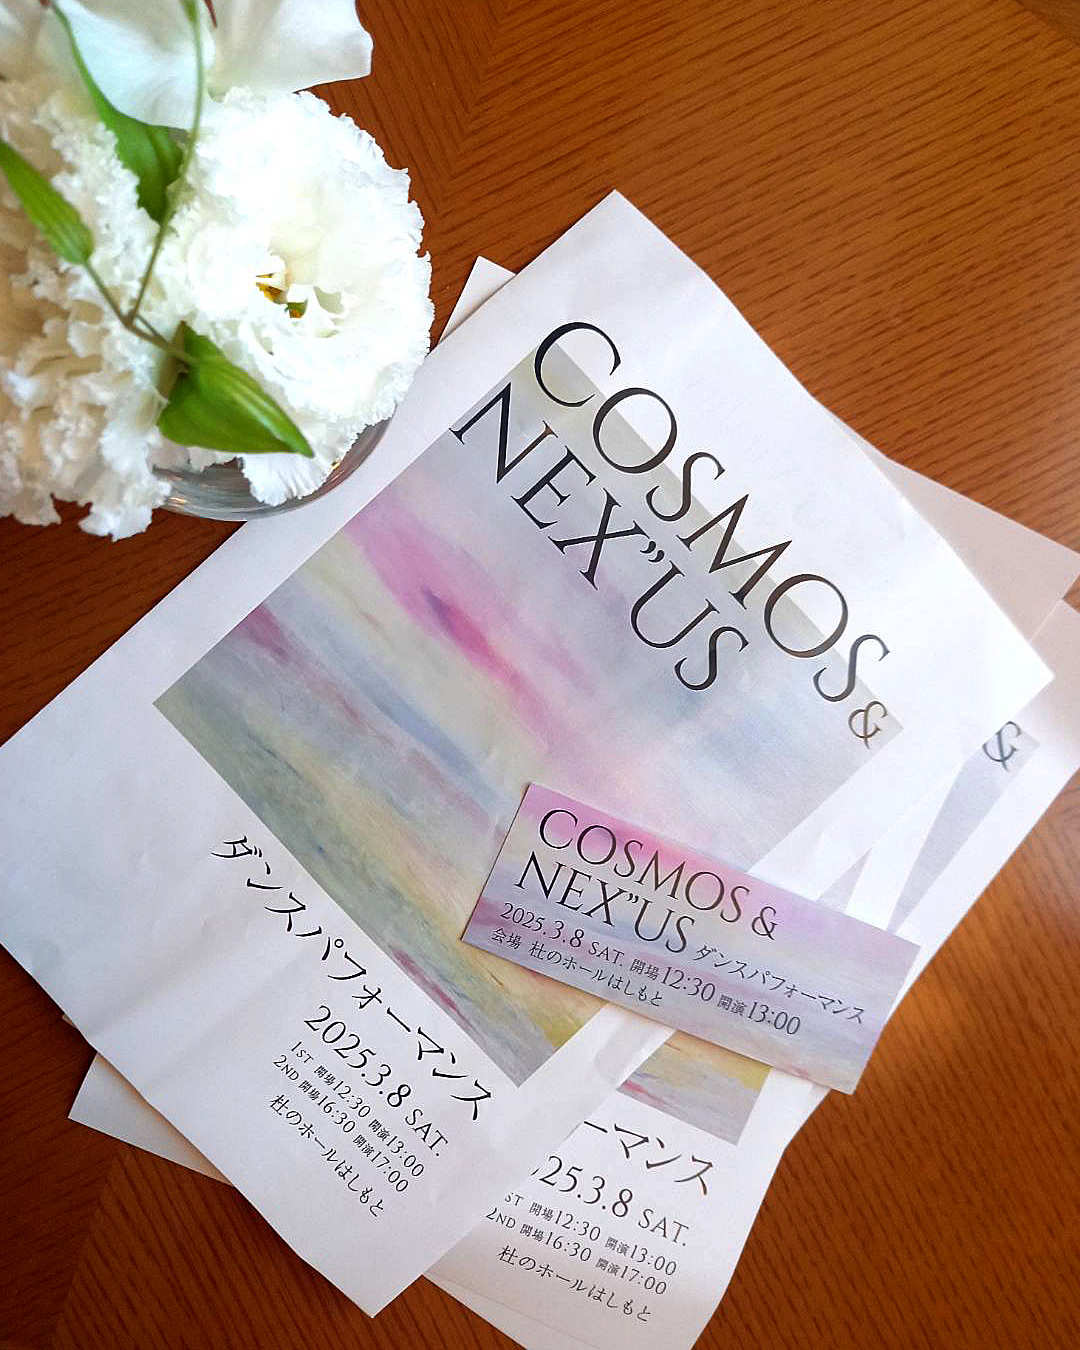 COSMOS &
NEX”US
ダンスパフォーマンス
2025.3.8 SAT.
1ST 開場12:30 開演13:00
2ND 開場16:30 開演17:00
杜のホールはしもと
COSMOS &
NEX”US ダンスパフォーマンス
2025.3.8 SAT. 開場12:30 開演13:00
会場 杜のホールはしもと
&
ーマンス
25.3.8 SAT.
ST 開場12:30 開演13:00
2ND 開場16:30 開演17:00
杜のホールはしもと